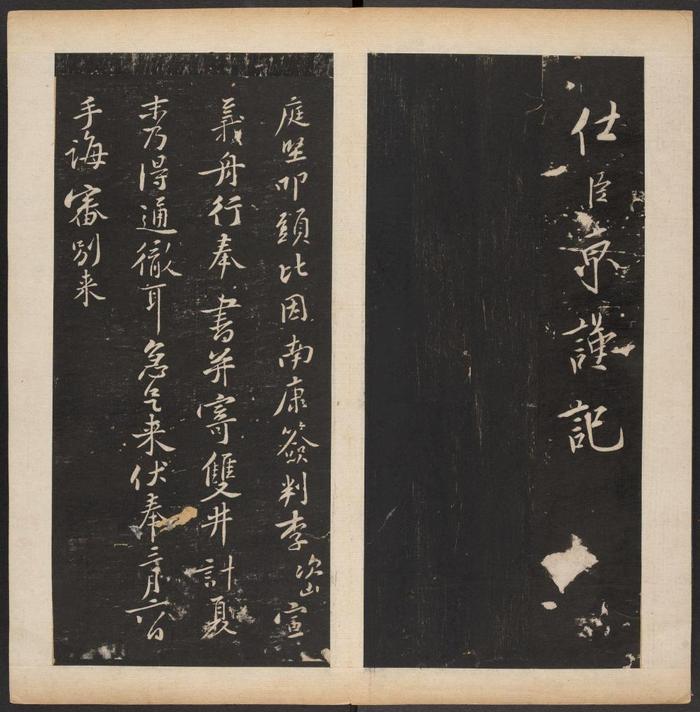 仕臣京謹記
庭堅叩頭比因南康簽判李次山宣
義舟行奉書并寄雙井計夏
末乃得通徹耳急足来伏奉三月六日
手誨審別来